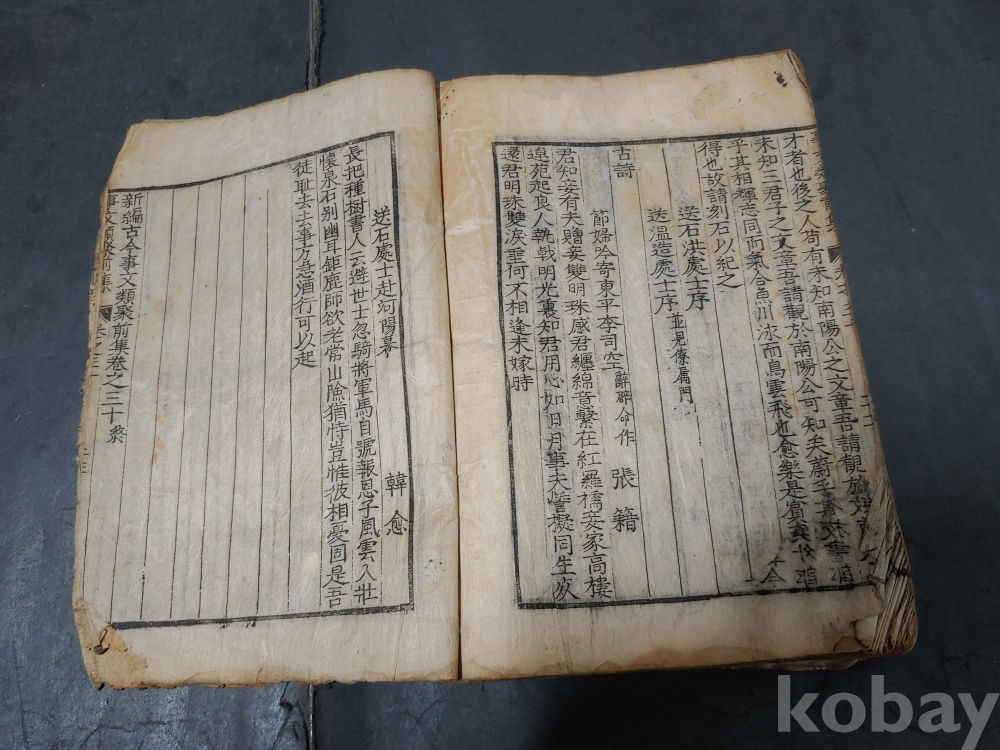 才者也後之人苟有未知南陽公之文章吾請觀於
未知三君子之文章吾請觀於南陽公可知矣蔚乎其
乎其相輝志同而氣合魚川泳而鳥雲飛也愈樂是賓
得也故請刻石以紀之
送石洪處士序
送溫造處士序 並見僚属門
古詩
節婦吟寄東平李司空 辭辟命作 張籍
君知妾有未贈妾雙明珠感君纏綿意繫在紅羅襦妾家高樓
連苑起良人執戟明光裏知君用心如日月事夫誓擬同生死
還君明珠雙淚垂何不相逢未嫁時
送石處士赴河陽幕 韓愈
長把種樹書人云避世士忽騎將軍馬自號報恩子風雲入壯
懷泉石別幽耳鉅鹿師欲老常山險猶恃豈惟彼相憂固是吾
徒耻去去事方急酒行可以起
新編古今事文類聚前集卷之三十 終
事文類聚前集
kobay